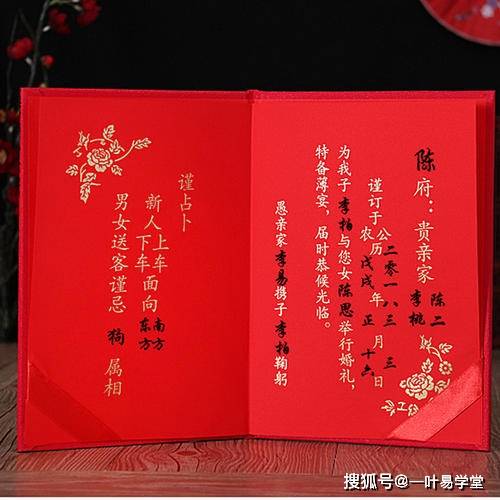 陈府：贵亲家 陈二 李桃
谨订于公农历二零一八戊戌年三正月三十六日
为我子李柏与您女陈思举行婚礼，
特备薄宴，届时恭候光临。
愚亲家李易携子李柏鞠躬
谨占卜
新人上车下车面向南方东方
男女送客谨忌狗属相
搜狐号@一叶易学堂